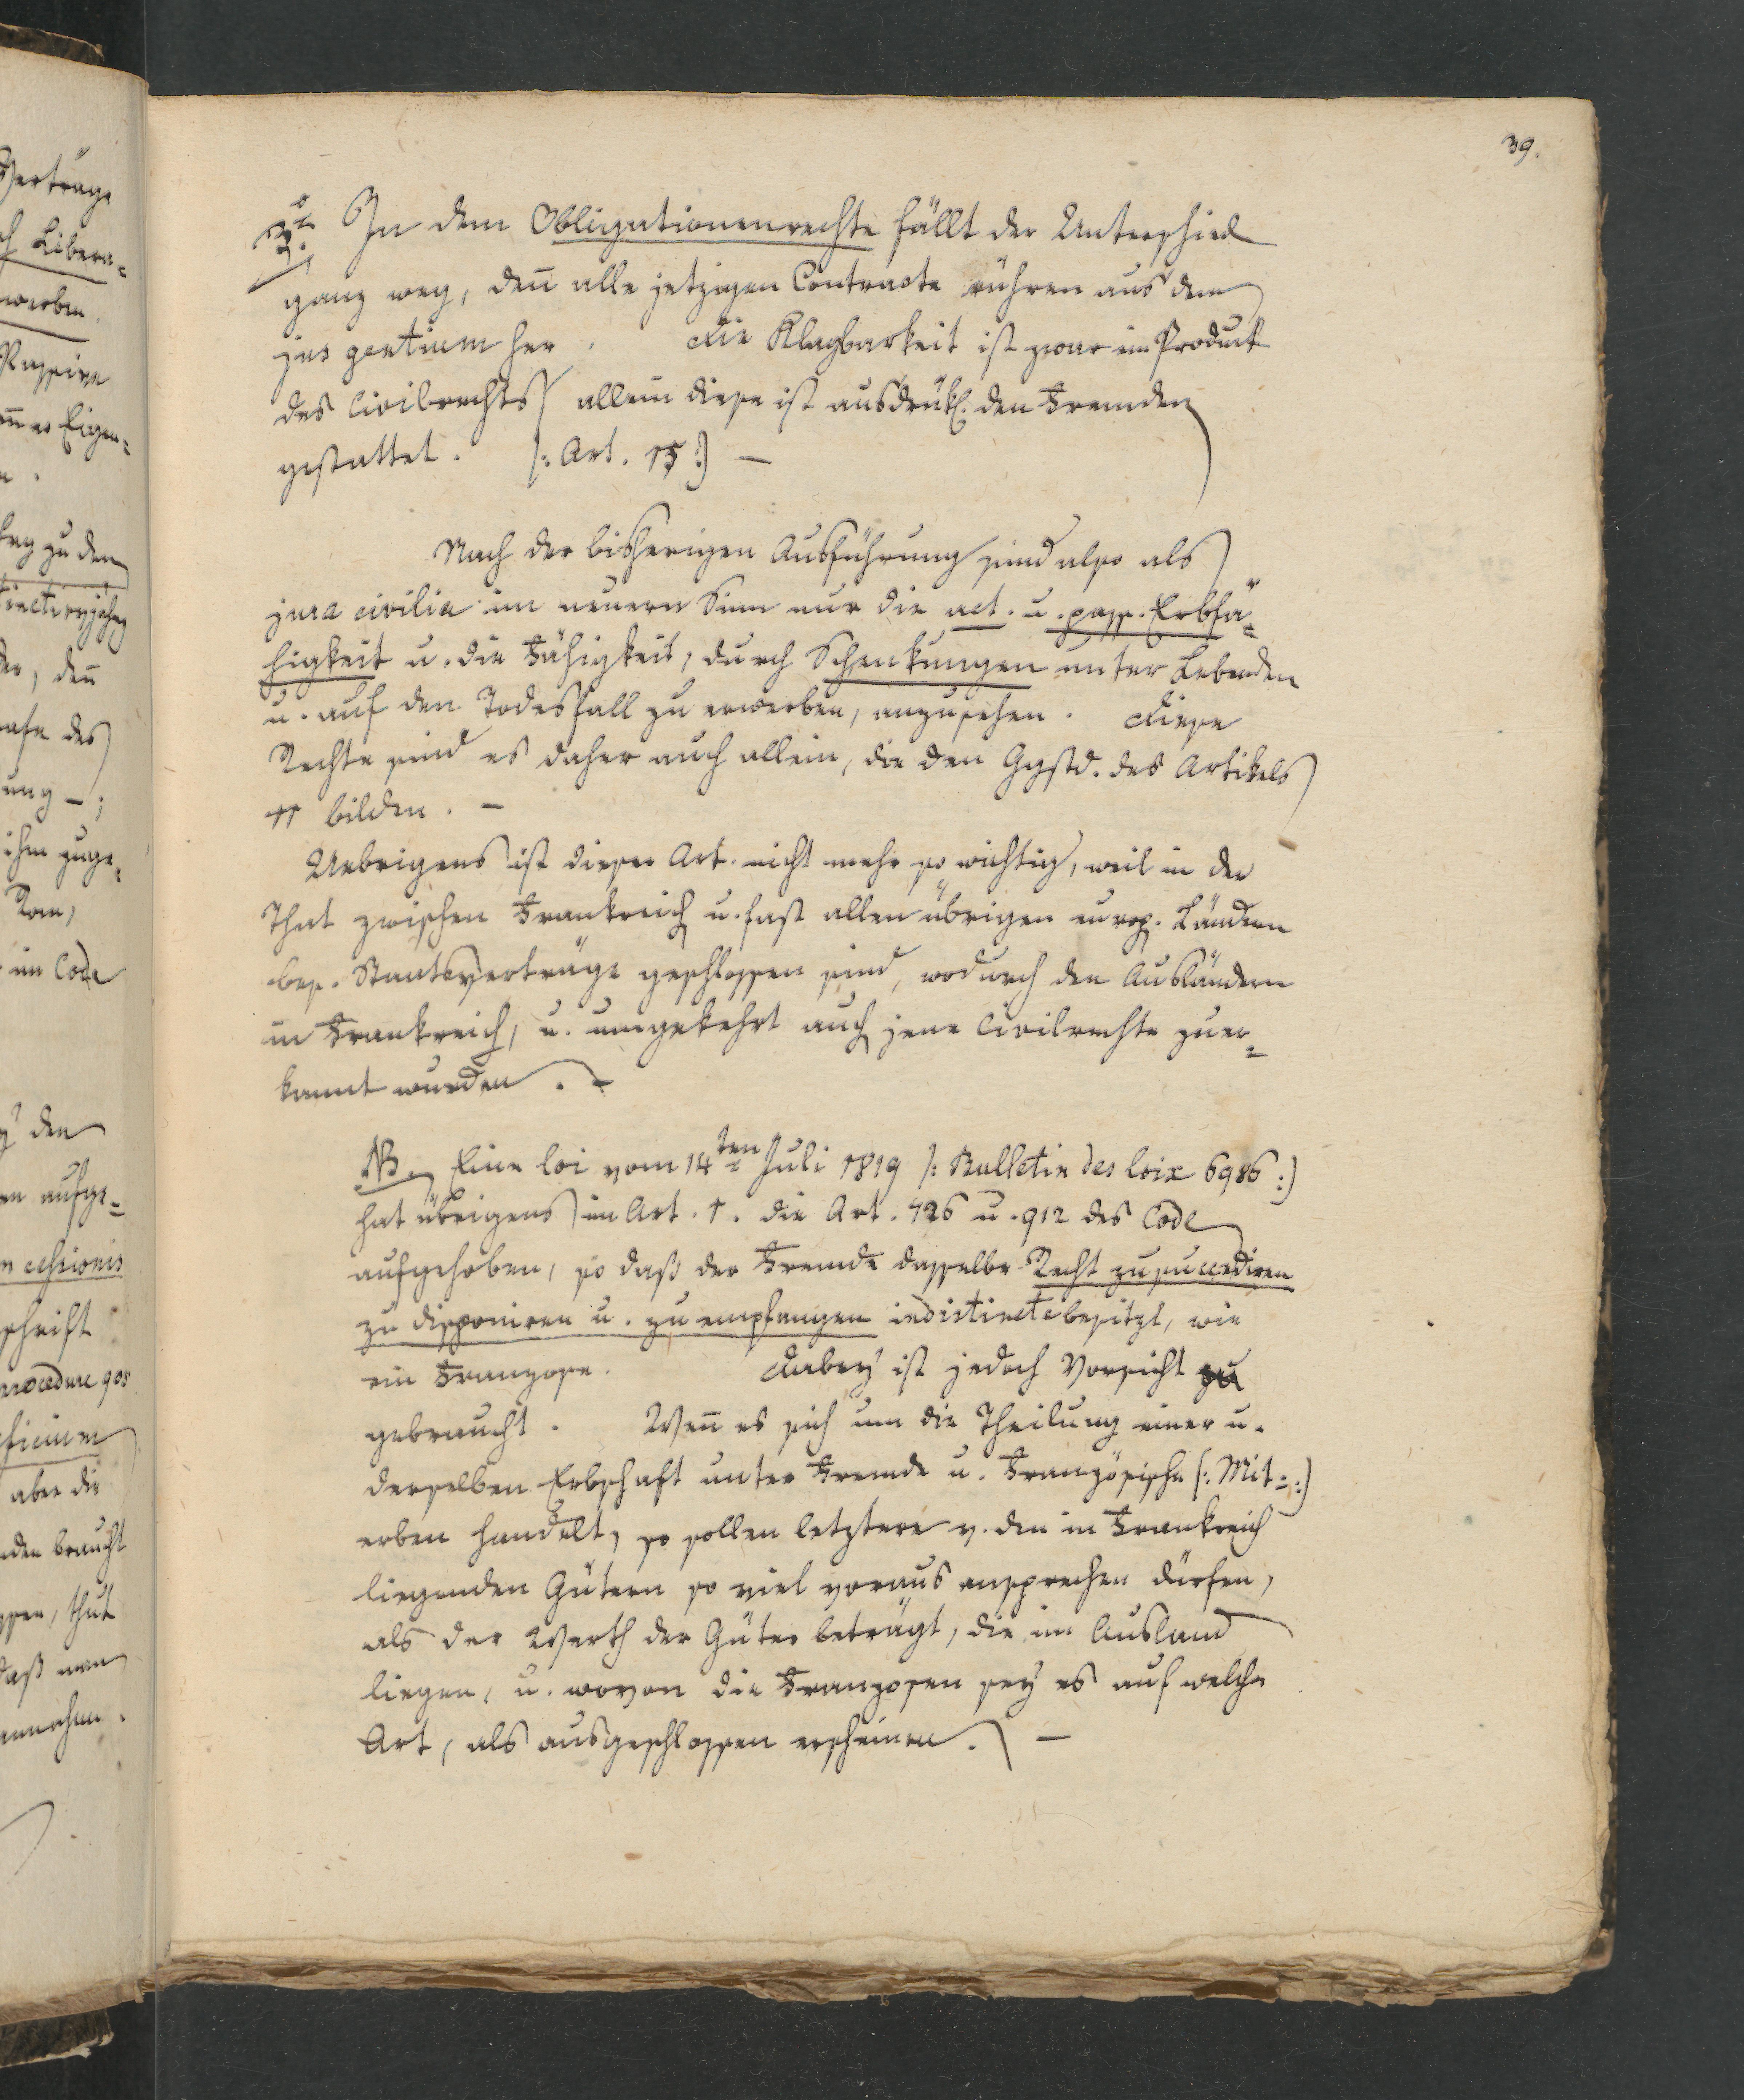 39.
3.) In dem Obligationenrechte fällt der Unterschied
ganz weg, deñ alle jetzigen Contracte rühren aus dem
jus gentium her. Die Klagbarkeit ist zwar ein Produkt
des Civilrechts allein diese ist ausdrükl. den Fremden
gestattet. /: Art. 15 :/ —
Nach der bisherigen Ausführung sind also als
jura civilia im neuern Sinn nur die act. u. pass. Erbfä=
higkeit u. die Fähigkeit, durch Schenkungen unter Lebenden
u. auf den Todesfall zu erwerben, anzusehen. Diese
Rechte sind es daher auch allein, die den Ggstd. des Artikels
11 bilden. —
Uebrigens ist dieser Art. nicht mehr so wichtig, weil in der
That zwischen Frankreich u. fast allen übrigen europ. Ländern
bes. Staatsverträge geschlossen sind, wodurch den Ausländern
in Frankreich, u. umgekehrt auch jene Civilrechte zuer=
kannt wurden. —
NB. Eine loi vom 14ten Juli 1819 /: Bulletin des loix 6986 :/
hat übrigens im Art. 1. die Art. 726 u. 912 des Code
aufgehoben, so daß der Fremde dasselbe Recht zu succediren
zu disponiren u. zu empfangen indistincte besitzt, wie
ein Franzose. Dabey ist jedoch Vorsicht zu
gebraucht. Weñ es sich um die Theilung einer u.
derselben Erbschaft unter Fremde u. Französische /: Mit= :/
erben handelt, so sollen letztere v. den in Frankreich
liegenden Gütern so viel voraus ansprechen dürfen,
als der Werth der Güter beträgt, die im Ausland
liegen, u. wovon die Franzosen sey es auf welche
Art, als ausgeschlossen erscheinen. —